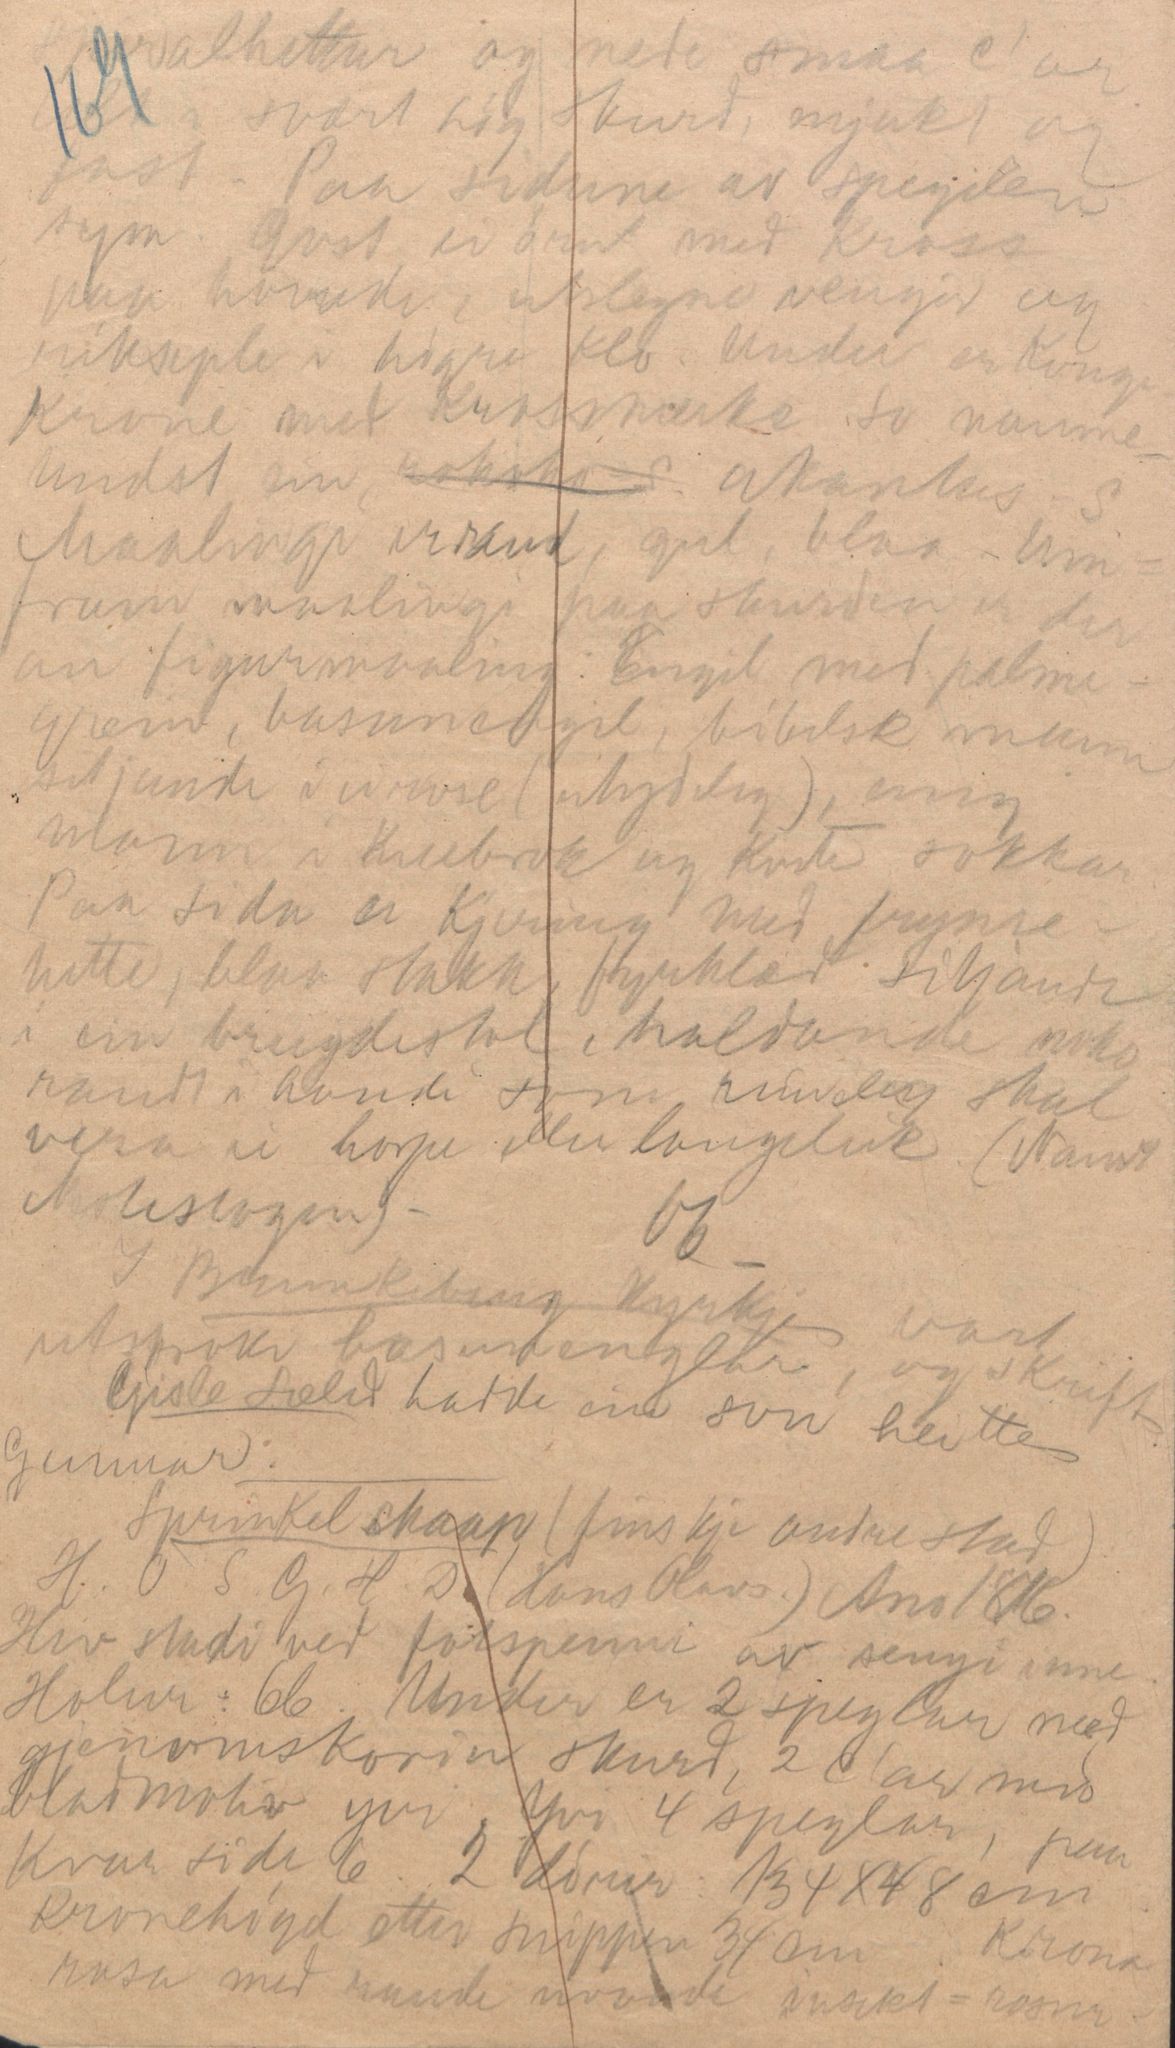 169
og nede smaa c'ar
svært høg skurd, mjukt og
fast. Paa sidune av spegilen
sym. Øvst ei ørn med kross
paa hovude, utslegne vengir og
riksepla i høgre klo. Under er konge
krone med krossmerke so
undst ein rokoko-s. akantus - S
Maalingi er raud, gul, blaa - Um=
fram maalingi paa skurden er der
au figurmaaling: Engil med palme-
grein, basunengil, bibelsk mann
sitjande i (utydeleg), ung
mann i knebrok og kvite sokkar
Paa sida er kjering med frynse-
hette, blaa stakk, fyrklæd sitjande
i ein brugdestol, haldande noko
raudt i handi som rimeleg skal
vera ei horpe eller langeleik. (Namnet
66 -
I Brunkeberg kyrkje vart
utsprøkt basunenglar, og skrift.
Gisle Sælid hadde ein son heitte
Gunnar:
Sprinkelskaap (finst kje andre stad)
H. O S. G. H. D. (Hans Olavs.) Ano 1816.
Hiv stadi ved fotspenni av sengi inne.
Holur: 66. Under er 2 speglar med
gjenomskorin skurd, 2 c'ar med
bladmotiv yvi. Yvi 4 speglar, paa
kvar side 6. 2 dørir: 134 X 48 cm
kronehøgd etter snippen 34 cm. Krona
rosa med raude insekt = rosur -